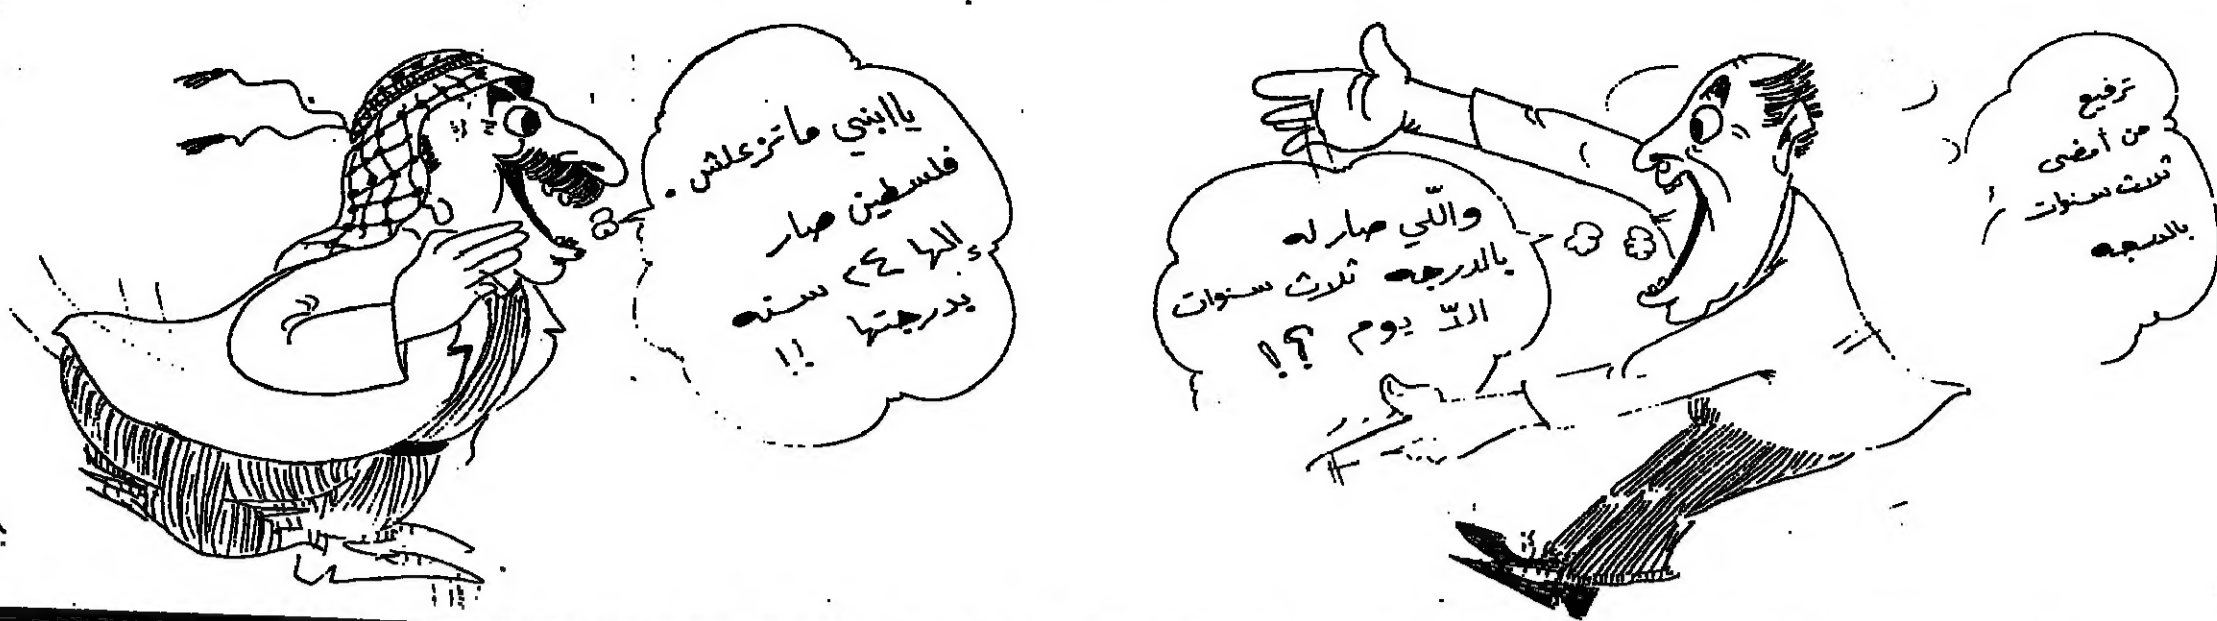 ترفيع
من أمضى
ثلاث سنوات
بالدرجه
واللّي صار له
بالدرجه ثلاث سنوات
الاّ يوم ؟!
يا ابني ماتزعلش .
فلسطين صار
إلها ٢٤ سنه
بدرجتها !!